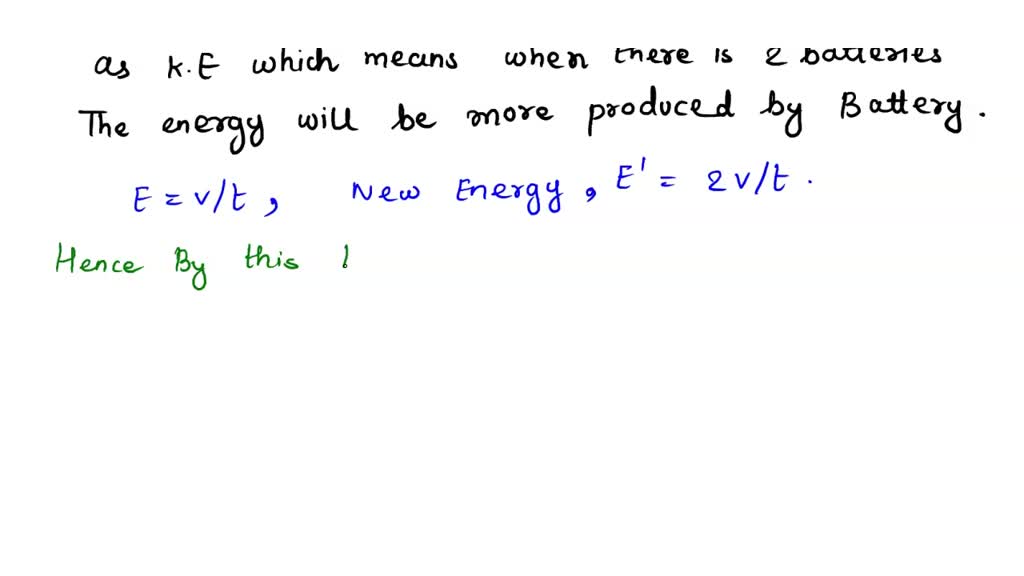 as K.E which means when there is 2 batteries
The energy will be more produced by Battery.
E = v/t , New Energy , E' = 2v/t .
Hence By this